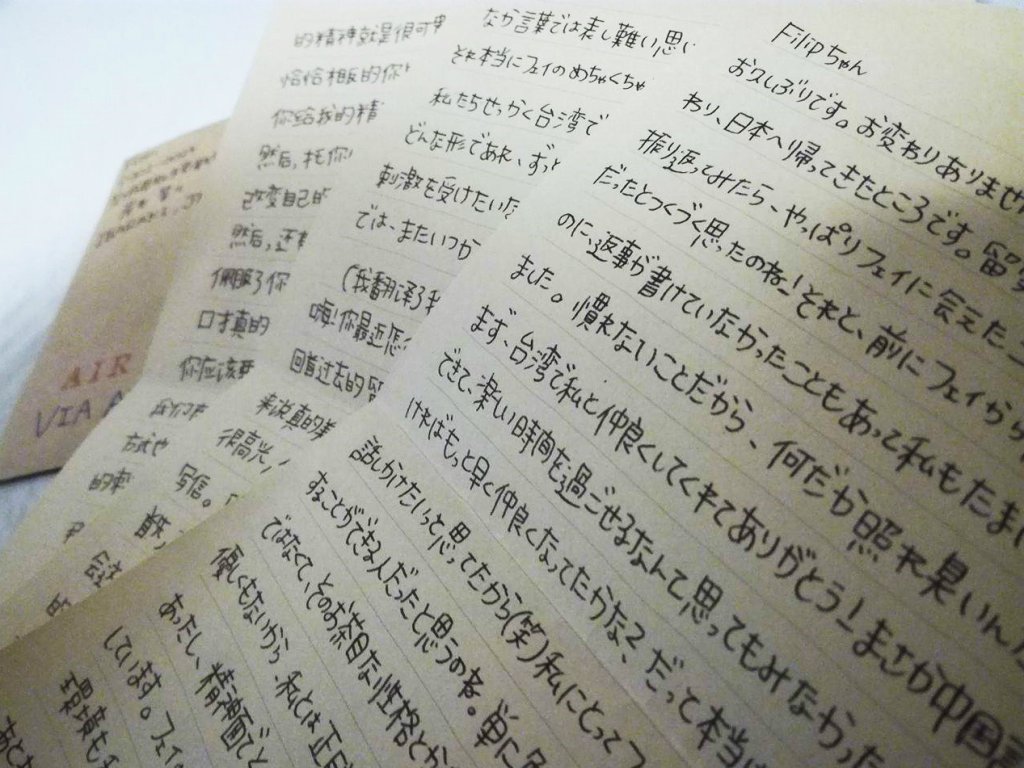 Filipちゃん
お久しぶりです。お変わりありませ
おり、日本へ帰ってきたところです。留
振り返ってみたら、やっぱりフェイに会えたこ
だったとつくづく思ったのね!それと、前にフェイから
のに、返事が書けていなかったこともあって私もたまに
ました。慣れないことだから、何だか照れ臭いん
まず、台湾で私と仲良くしてくれてありがとう!まさか中国
できて、楽しい時間を過ごせるなんて思ってもみなかった
ければもっと早く仲良くなってたかな?だって本当は
話しかけたいって思ってたから(笑)私にとってフ
することができる人だったと思うの者。単に
ではなくて、そのお茶目な性格とか
優しくもないから、私とは正反
あったし、精神面でと
しています。フェイ
環境も
なか言葉では表し難い思い
それ本当にフェイのめちゃくちゃ
私たちせっかく台湾で
どんな形であれ、ずっ
刺激を受けたいな
では、またいつか
(我翻译了我
嗨!你最近怎
回首过去的留
来说真的
很高兴
写信。
的精神就是很可
恰恰相反的你
你给我的精
然后,托你
改变自己的
然后,还有
佩服了你
口才真的
你应该要
我们
方式也
的
AIR
VIA A